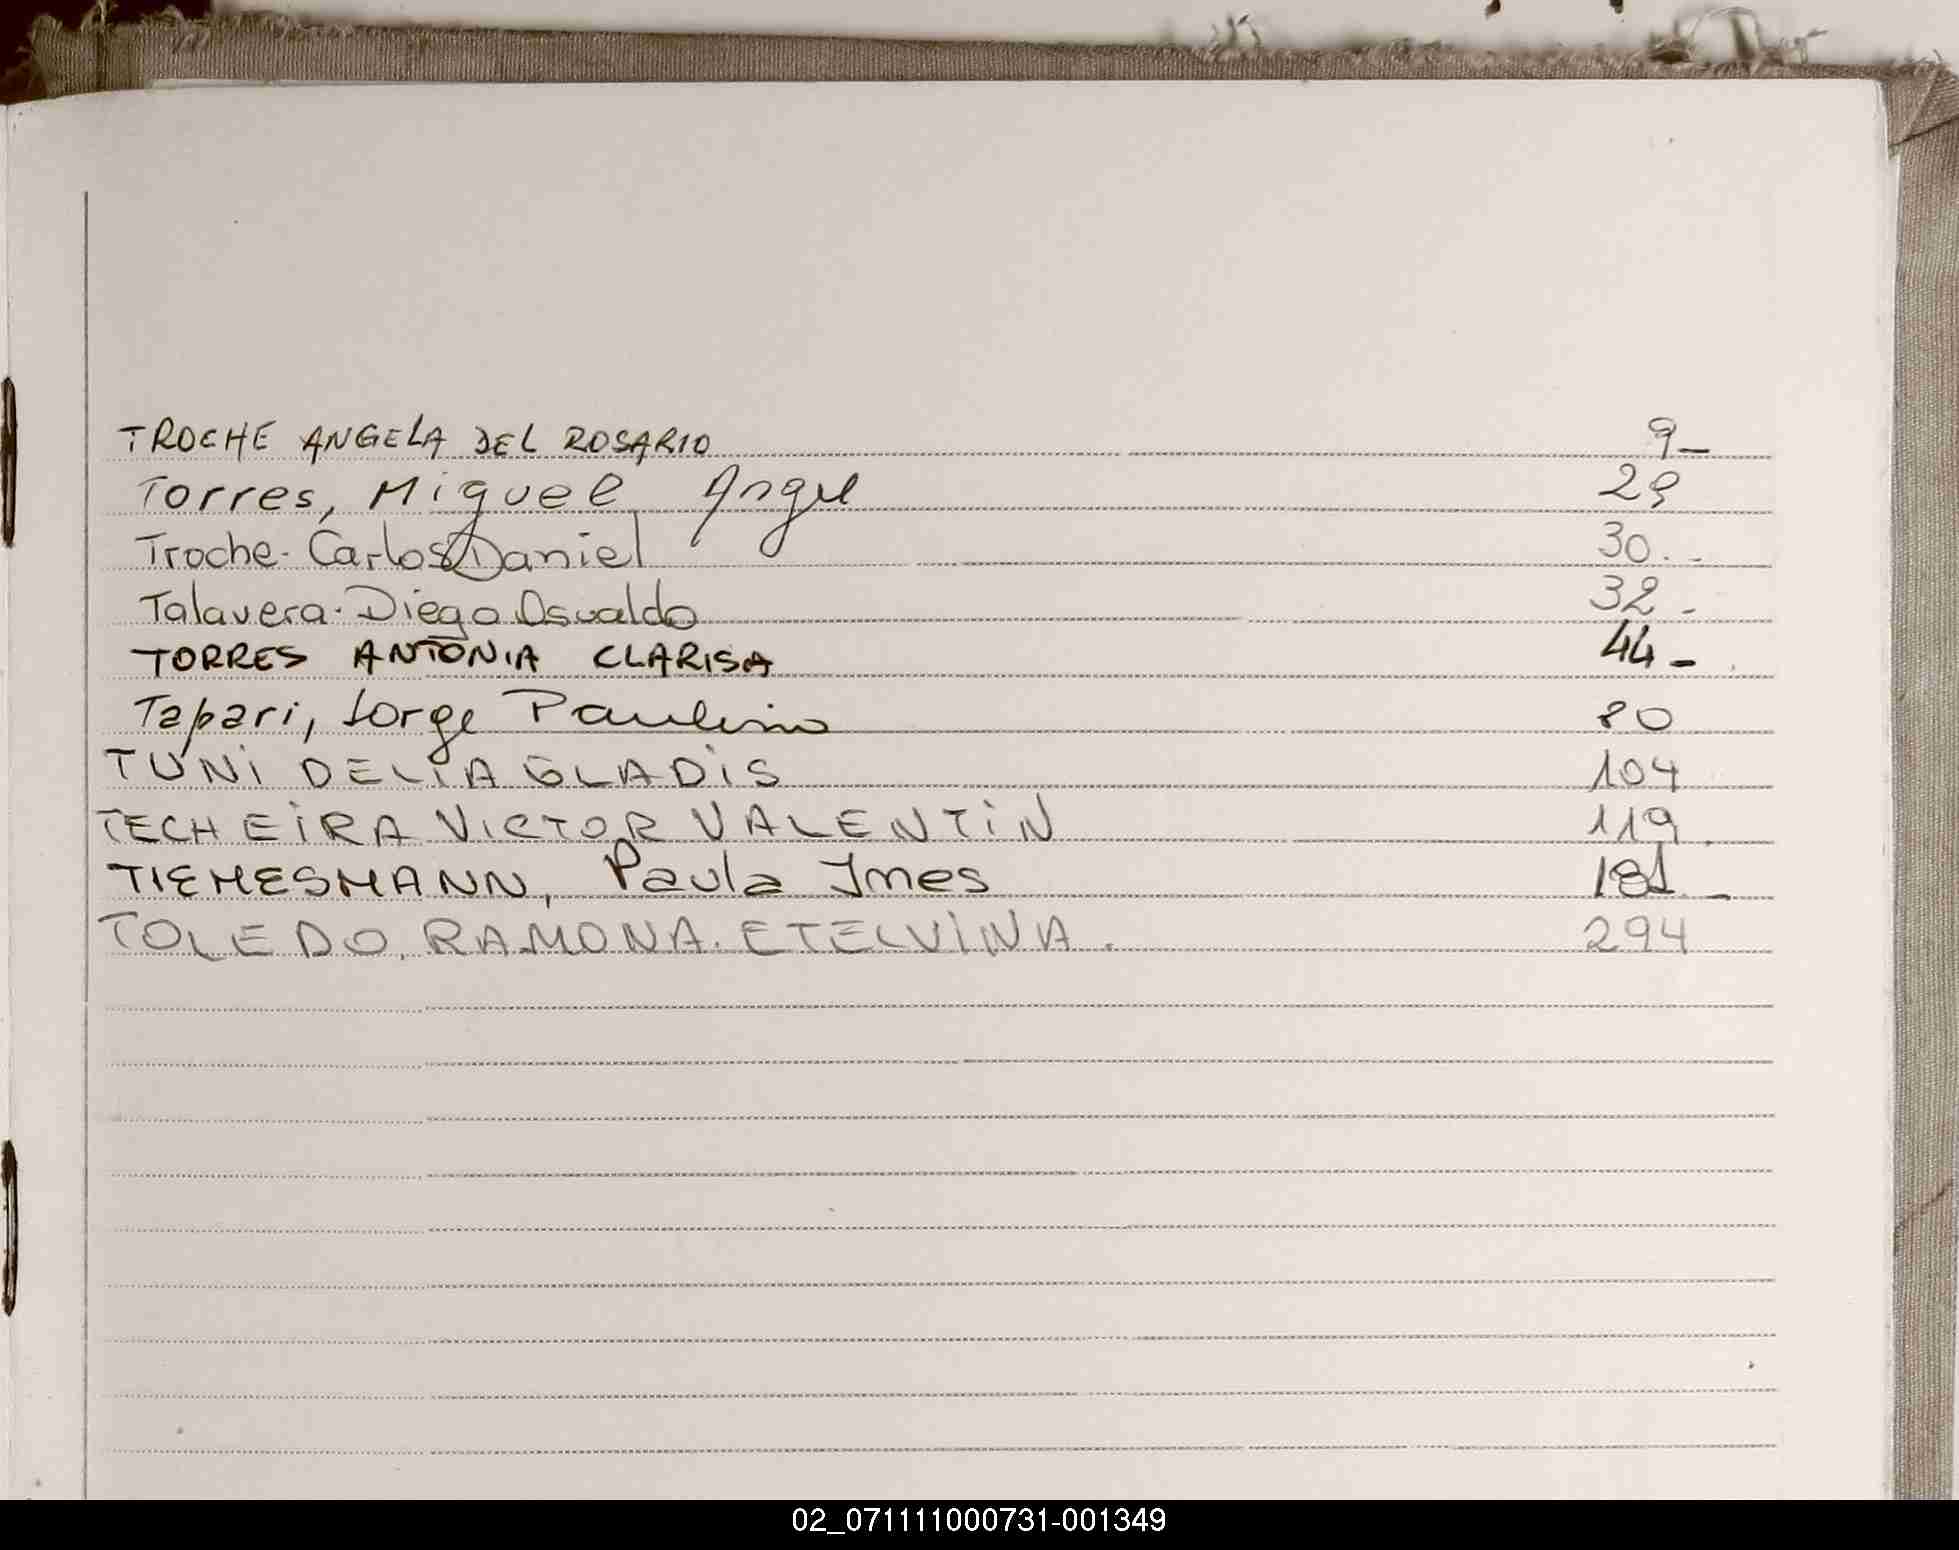 TROCHE ANGELA DEL ROSARIO 9-
Torres, Miguel Angel 29
Troche. Carlos Daniel 30..
Talavera. Diego Osvaldo 32-
TORRES ANTONIA CLARISA 44-
Tapari, Jorge Paulino 80
TUNI DELIA GLADIS 104
TECHEIRA VICTOR VALENTIN 119
TIEMESMANN, Paula Ines 181-
TOLEDO, RAMONA. ETELVINA. 294
02_071111000731-001349